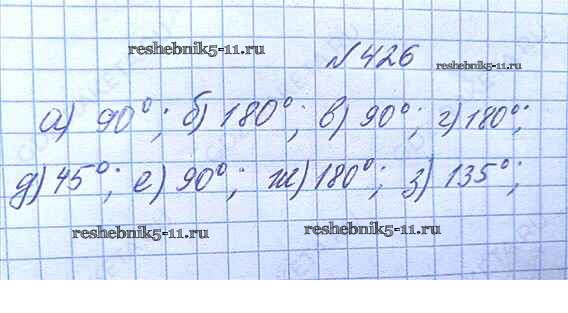 reshebnik5-11.ru
№426 reshebnik5-11.ru
а) 90°; б) 180°; в) 90°; г) 180°;
д) 45°; е) 90°; ж) 180°; з) 135°;
reshebnik5-11.ru reshebnik5-11.ru